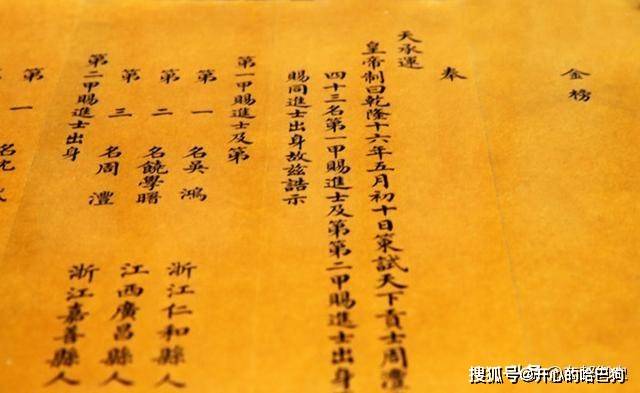 金榜
奉
天承運
皇帝制曰乾隆十六年五月初十日策試天下貢士周澧
四十三名第一甲賜進士及第第二甲賜進士出身
賜同進士出身故兹誥示
第一甲賜進士及第
第一名吳鴻 浙江仁和縣人
第二名饒學曙 江西廣昌縣人
第三名周澧 浙江嘉善縣人
第二甲賜進士出身
第一名
搜狐号@开心的哈巴狗